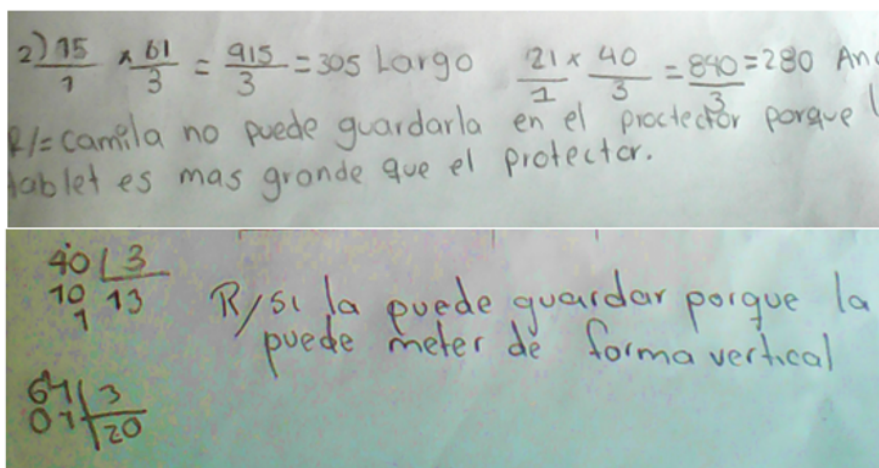 2) 15/1 × 61/3 = 915/3 = 305 Largo 21/1 × 40/3 = 840/3 = 280 An
R/= camila no puede guardarla en el proctector porque l
tablet es mas grande que el protector.
40 | 3
10 13
1
R/ si la puede guardar porque la
puede meter de forma vertical
61 | 3
01 20